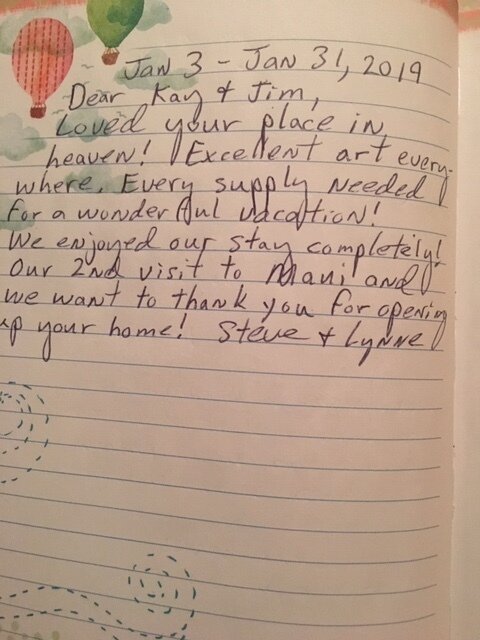 Jan 3 - Jan 31, 2019
Dear Kay & Jim,
Loved your place in
heaven! Excellent art every-
where. Every supply needed
for a wonderful vacation!
We enjoyed our stay completely!
Our 2nd visit to Maui and
we want to thank you for opening
up your home! Steve & Lynne